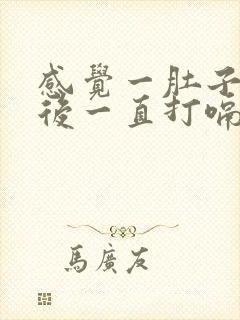 感覺一肚子
後一直打嗝
馬廣友